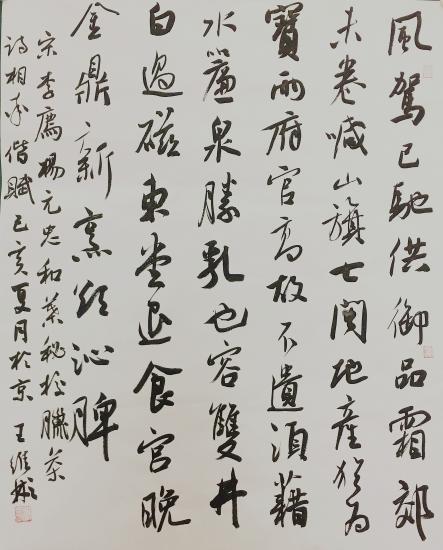 風駕已馳供御品霜郊
未卷喊山旗七閩地產猶為
寶兩府官高故不遺須藉
水簾泉勝乳也容雙井
白過磁東堂退食宮晚
金鼎新烹欲沁脾
宋李廌楊元忠和葉秘校臘茶
詩相率偕賦己亥夏月於京 王維彬